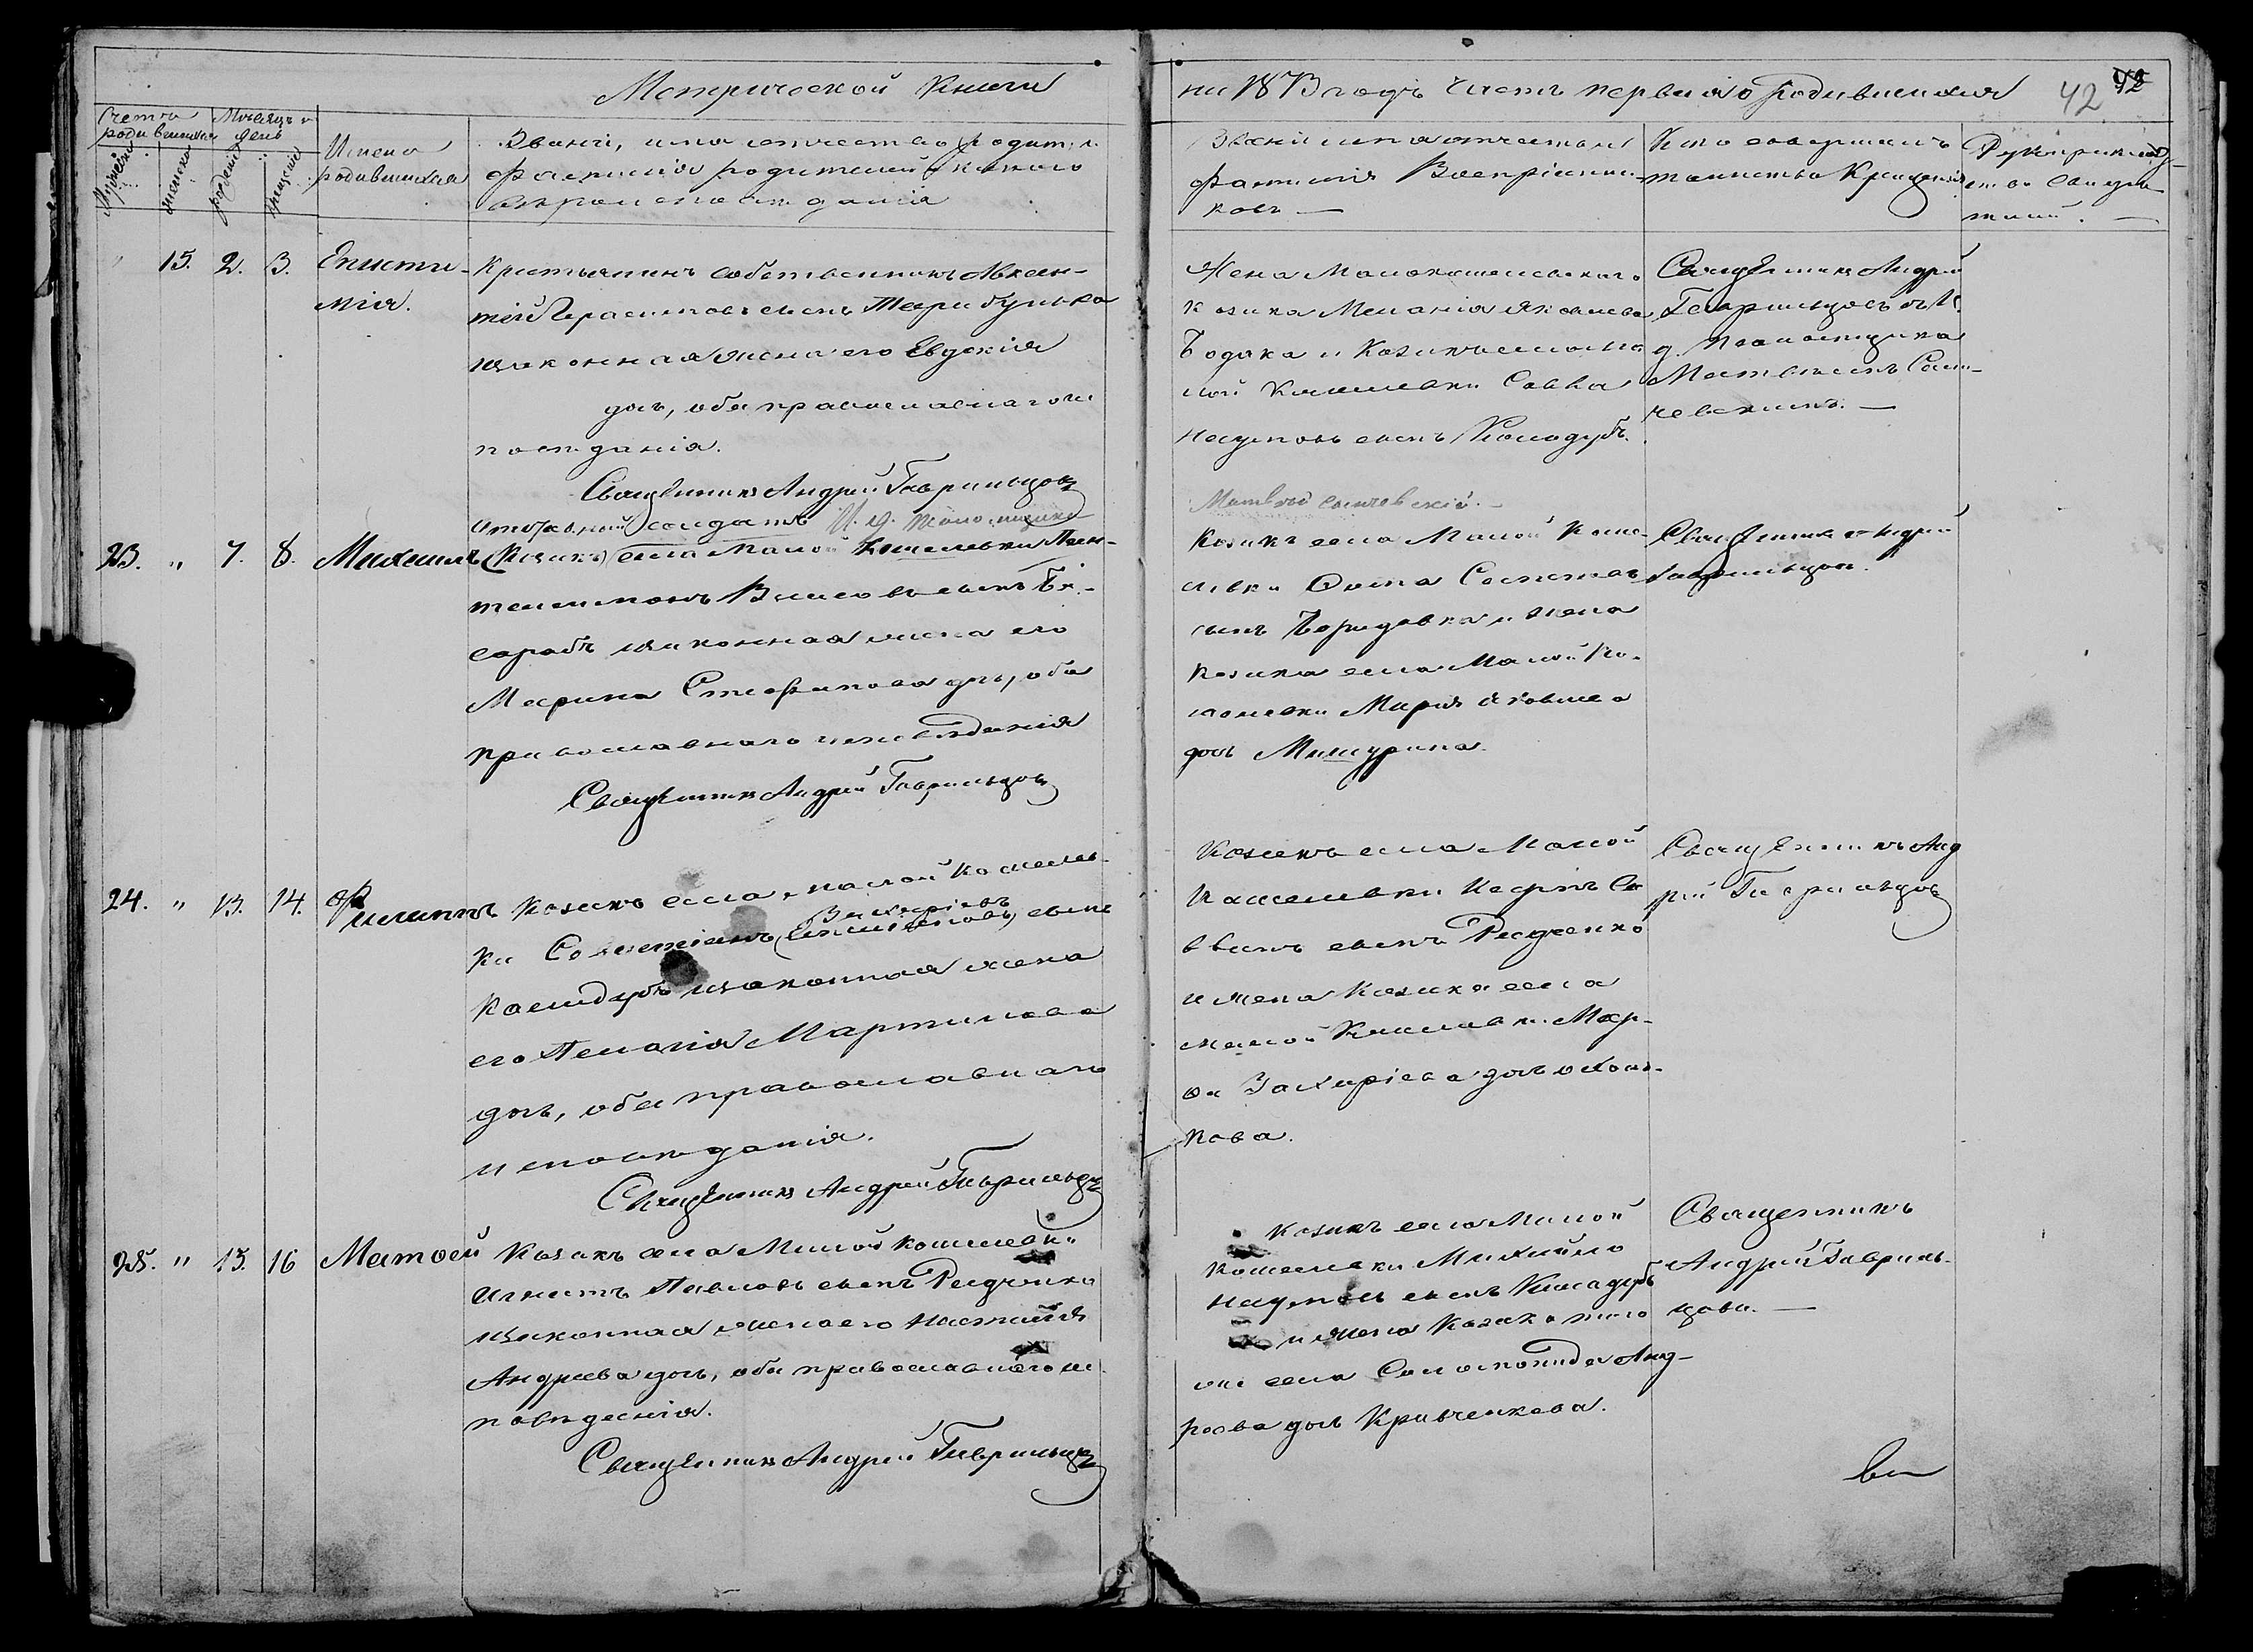 Метрической Книги
на 1873 годъ Часть первая о Родившихся
42
42
Счетъ родившихся
Мѣсяцъ и день
Мужеска
женска
рожденія
крещенія
Имена
родившихся
Званіе, имя отчество и
фамилія родителей и какого
вѣроисповѣданія
Званіе имя отчество и
фамилія Воспріемни-
ковъ —
Кто совершалъ
таинство Крещенія
Рукоприклад-
ство свидѣ-
телей. —
15. 2. 3.
Еписти-
мія.
Крестьянинъ собственникъ Авксен-
тій Герасимовъ сынъ
и законная жена его Евдокія
дочь, оба православнаго ис
повѣданія.
Священникъ Андрей Гаврильцовъ
И. д. псаломщика
Матвѣй
Жена Малокошелевскаго
козака Меланія Яковлева
и Козакъ села Ма
лой Кошелевки Савва
Наумовъ сынъ Колодубъ.
Священникъ Андрей
Гаврильцовъ съ И.
д. псаломщика
Матвѣемъ
23. " 7. 8.
Михаилъ
Отставной солдатъ
(Козакъ) села Малой Кошелевки Пан-
телеимонъ сынъ
и законная жена его
Марина Стефанова дочь, оба
православнаго исповѣданія
Священникъ Андрей Гаврильцовъ
Козакъ села Малой Коше-
левки Фома
сынъ и жена
козака села Малой Ко-
шелевки Марія Яковлева
дочь Мишурина.
Священникъ Андрей
Гаврильцовъ.
24. " 13. 14.
Филиппъ
Козакъ села Малой Кошелев-
Захаріевъ
ки сынъ
Колодубъ и законная жена
его Пелагія Мартинова
дочь, оба православнаго
исповѣданія.
Священникъ Андрей Гаврильцовъ
Козакъ села Малой
Кошелевки Карпъ Са
ввинъ сынъ Редченко
и жена Козака села
Малой Кошелевки Мар-
фа Захаріева дочь
кова.
Священникъ Анд
рей Гаврильцовъ
25. " 15. 16
Матвей
Козакъ села Малой Кошелевки
Игнатъ Павловъ сынъ Редченко
и законная жена его Настасія
Андреева дочь, оба православнаго ис
повѣданія.
Священникъ Андрей Гаврильцовъ
Козакъ села Малой
Кошелевки Михайло
Наумовъ сынъ Колодубъ
и жена Козака того
же села Соломонида Анд-
реева дочь Кривченкова.
Священникъ
Андрей Гавриль-
цовъ. —